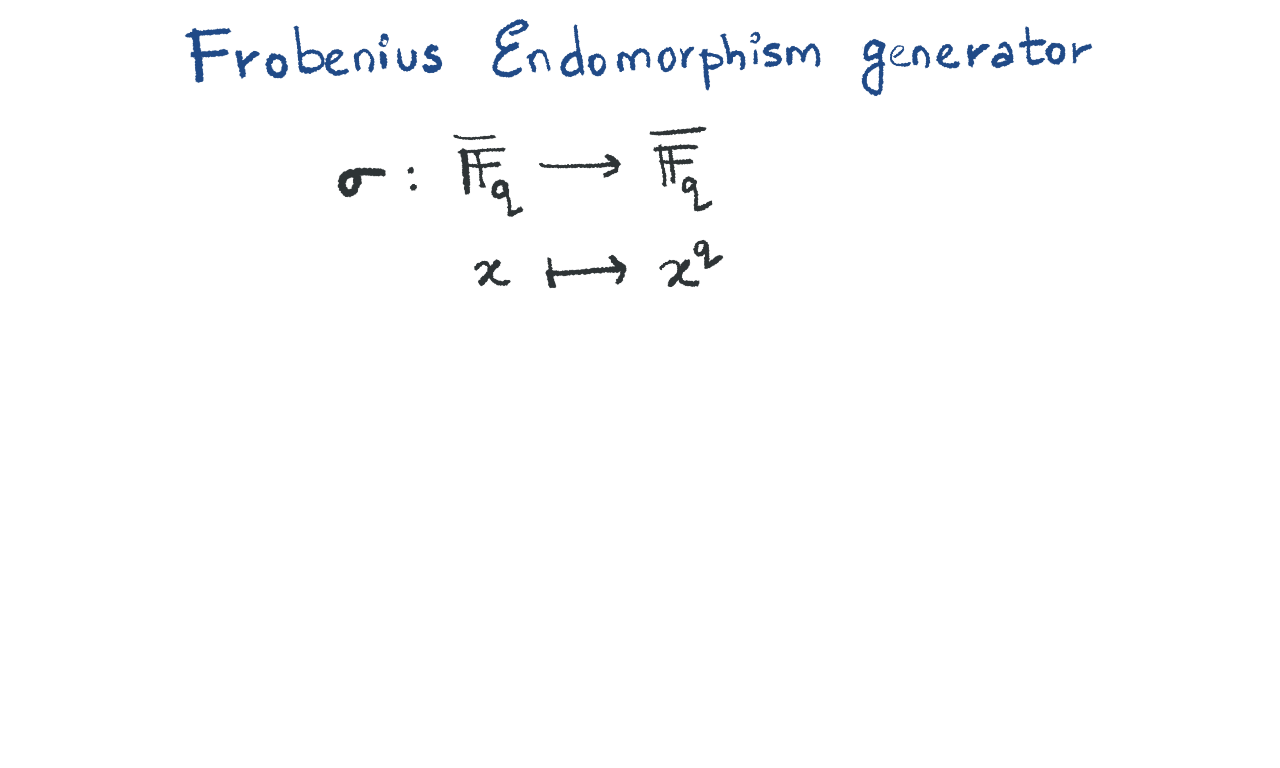 Frobenius Endomorphism generator
σ : 𝔽̅_q ⟶ 𝔽̅_q
x ⟼ x^q